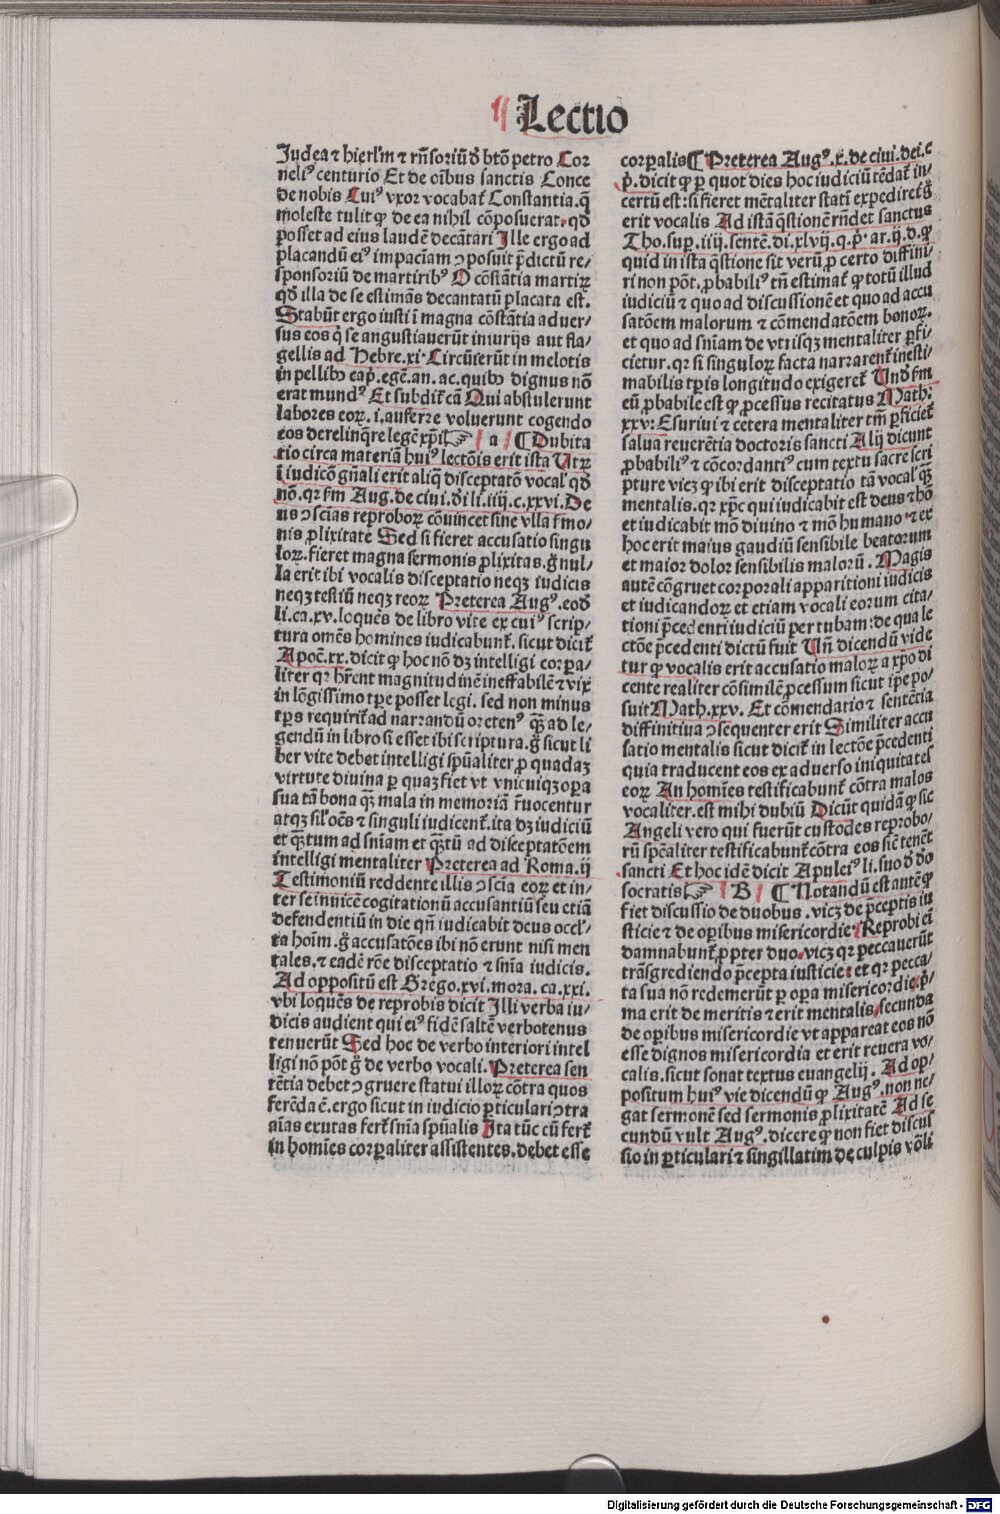 Lectio
Iudea ⁊ hierl'm ⁊ rn̄soriū ꝺ̄ btō petro Cor
neliꝰ centurio Et de oībus sanctis Conce
de nobis Cuiꝰ vxor vocabat᷑ Constantia. q̄
moleste tulit ꝙ de ea nihil cōposuerat. qꝺ̄
posset ad eius laudē decātari Ille ergo ad
placandū eiꝰ impaciam ↄposuit p̄dictū re/
sponsoriū de martiribꝰ O cōstātia martiꝝ
qꝺ̄ illa de se estimās decantatū placata est.
Stabūt ergo iusti ī magna cōstātia aduer/
sus eos q̄ se angustiauerūt iniurijs aut fla/
gellis ad Hebre.xi. Circūierūt in melotis
in pellibꝫ cap̄. egē. an. ac. quibꝫ dignus nō
erat mundꝰ Et subdit᷑ cā Qui abstulerunt
labores eoꝝ. i. auferre voluerunt cogendo
eos derelinq̄re legē xp̄i ☞ a ¶ Dubita
tio circa materiā huiꝰ lectōis erit ista Vtꝝ
ī iudicō gn̄ali erit aliq̄ disceptatō vocal' qꝺ̄
nō. qꝛ ẜm Aug. de ciui. ꝺ̄i li. iiij. c. xxvi. De
us ↄscīas reproboꝝ cōuincet sine vlla ẜmo/
nis ꝓlixitate Sed si fieret accusatio singu
loꝝ. fieret magna sermonis ꝓlixitas. g̊ nul/
la erit ibi vocalis disceptatio neqꝫ iudicis
neqꝫ testiū neqꝫ reoꝝ Preterea Augꝰ. eoꝺ̄
li. ca. xv. loquēs de libro vite ex cuiꝰ scrip/
tura omēs homines iudicabunt᷑. sicut dicit᷑
Apoc̄. xx. dicit ꝙ hoc nō dꝫ intelligi corpa/
liter qꝛ hr̄ent magnitudinē ineffabilē ⁊ vix
in lōgissimo tp̄e posset legi. sed non minus
tp̄s requirit᷑ ad narrandū oretenꝰ q̄ꝫ ad le/
gendū in libro si esset ibi scriptura. g̊ sicut li
ber vite debet intelligi spūaliter ꝓ quadaꝫ
virtute diuina ꝑ quaꝫ fiet vt vnicuiqꝫ oꝑa
sua tā bona q̄ꝫ mala in memoriā r̄uocentur
atqꝫ sil' oēs ⁊ singuli iudicent᷑. ita dꝫ iudiciū
et q̄ꝫtum ad sn̄iam et q̄ꝫtū ad disceptatōem
intelligi mentaliter Preterea ad Roma. ij
Testimoniū reddente illis ↄscīa eoꝝ et in/
ter se inuicē cogitationū accusantiū seu etiā
defendentiū in die qn̄ iudicabit deus occul'/
ta hoīm. g̊ accusatōes ibi nō erunt nisi men
tales. ⁊ eadē rōe disceptatio ⁊ sn̄ia iudicis.
Ad oppositū est Grego. xvi. mora. ca. xxi.
vbi loquēs de reprobis dicit Illi verba iu/
dicis audient qui eiꝰ fidē saltē verbotenus
tenuerūt Sed hoc de verbo interiori intel
ligi nō pōt g̊ de verbo vocali. Preterea sen
tētia debet ↄgruere statui illoꝝ cōtra quos
ferēda ē. ergo sicut in iudicio ꝑticulari ↄtra
aīas exutas fert᷑ sn̄ia spūalis Ita tūc cū fert᷑
in homīes corꝑaliter assistentes. debet esse
corꝑalis ¶ Preterea Augꝰ. x̄. de ciui. dei. c
p̄. dicit ꝙ ꝑ quot dies hoc iudiciū tēdat᷑ in/
certū est: si fieret mētaliter statī expediret᷑ g̊
erit vocalis Ad istā q̄stionē rn̄det sanctus
Tho. suꝑ. iiij. sentē. di. xlvij. q. p̄. ar. ij. d. ꝙ
quid in ista q̄stione sit verū ꝓ certo diffini/
ri non pōt. ꝓbabiliꝰ tn̄ estimat᷑ ꝙ totū illud
iudiciū ⁊ quo ad discussionē et quo ad accu
satōem malorum ⁊ cōmendatōem bonoꝝ.
et quo ad sn̄iam de vtrisqꝫ mentaliter ꝑfi/
cietur. qꝛ si singuloꝝ facta narrarent᷑ inesti/
mabilis tꝑis longitudo exigeret᷑ Vnꝺ̄ ẜm
eū ꝓbabile est ꝙ ꝓcessus recitatus Math.
xxv: Esuriui ⁊ cetera mentaliter tm̄ ꝑficiet᷑
salua reuerētia doctoris sancti Alij dicunt
ꝓbabiliꝰ ⁊ cōcordantiꝰ cum textu sacre scri
pture vicꝫ ꝙ ibi erit disceptatio tā vocal' q̄ꝫ
mentalis. qꝛ xp̄c qui iudicabit est deus ⁊ hō
et iudicabit mō diuino ⁊ mō humano ⁊ ex
hoc erit maius gaudiū sensibile beatorum
et maior dolor sensibilis maloꝝ. Magis
autē cōgruet corporali apparitioni iudicis
et iudicandoꝝ et etiam vocali eorum cita/
tioni p̄cedenti iudiciū per tubam: de qua le
ctōe p̄cedenti dictū fuit Vn̄ dicendū vide
tur ꝙ vocalis erit accusatio maloꝝ a xp̄o di
cente realiter cōsimilē ꝓcessum sicut ip̄e po/
suit Math. xxv. Et cōmendatio ⁊ sentētia
diffinitiua ↄsequenter erit Similiter accu
satio mentalis sicut dicit᷑ in lectōe p̄cedenti
quia traducent eos ex aduerso iniquitates
eoꝝ An homīes testificabunt᷑ cōtra malos
vocaliter. est mihi dubiū Dicūt quidā ꝙ sic
Angeli vero qui fuerūt custodes reprobo/
rū spēaliter testificabunt᷑ cōtra eos sic̄ tenēt
sancti Et hoc idē dicit Apuleiꝰ li. suo ꝺ̄ ꝺ̄o
socratis ☞ B ¶ Notandū est autē ꝙ
fiet discussio de duobus. vicꝫ de p̄ceptis iu
sticie ⁊ de oꝑibus misericordie. Reprobi eī
damnabunt᷑ ꝓpter duo. vicꝫ qꝛ peccauerūt
trāsgrediendo p̄cepta iusticie: et qꝛ pecca/
ta sua nō redemerūt ꝑ oꝑa misericordie. p̄/
ma erit de meritis ⁊ erit mentalis secunda
de oꝑibus misericordie vt appareat eos nō
esse dignos misericordia et erit reuera vo/
calis. sicut sonat textus euangelij. Ad op/
positum huiꝰ vie dicendū ꝙ Augꝰ. non ne/
gat sermonē sed sermonis ꝓlixitatē Ad se
cundū vult Augꝰ. dicere ꝙ non fiet discus
sio in ꝑticulari ⁊ singillatim de culpis vōli
Digitalisierung gefördert durch die Deutsche Forschungsgemeinschaft - DFG